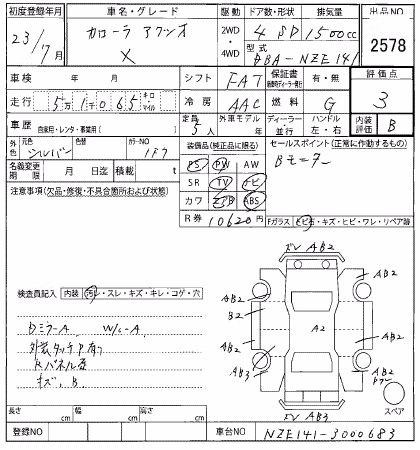 初度登録年月 車名・グレード 駆動 ドア数・形状 排気量 出品NO
23/7月 カローラ アクシオ X 2WD・4WD 4 SD 1500cc 2578
型式 DBA-NZE141
車検 年 月 シフト FAT 保証書 有・無 評価点
走行 5万1千065 キロ・マイル 冷房 AAC 燃料 G 3
車歴 自家用・レンタ・事業用( ) 定員 5人 外車モデル 年 ディーラー・並行 ハンドル 左・右 内装評価 B
外色 元色 シルバー 色替 カラーNO 1F7 装備品(純正品に限る) セールスポイント(正常に作動するもの)
名義変更期限 月 日迄 積載 t PS PW AW Bモニター
注意事項(欠品・修復・不具合箇所および状態) SR TV ナビ
カワ エアB ABS
R券 10620円 Fガラス ヒビ石・キズ・ヒビ・ワレ・リペア跡
検査員記入 内装 汚レ・スレ・キズ・キレ・コゲ・穴
Dミラー A W/C-A
外装タッチP有り
Rパネル歪
キズ、B
AB2
AB2
AB2
B2
A2
AB2
AB2
AB3
AB2
AB3
スペア
長さ cm 幅 cm 高さ cm
登録NO 車台NO NZE141-3000683